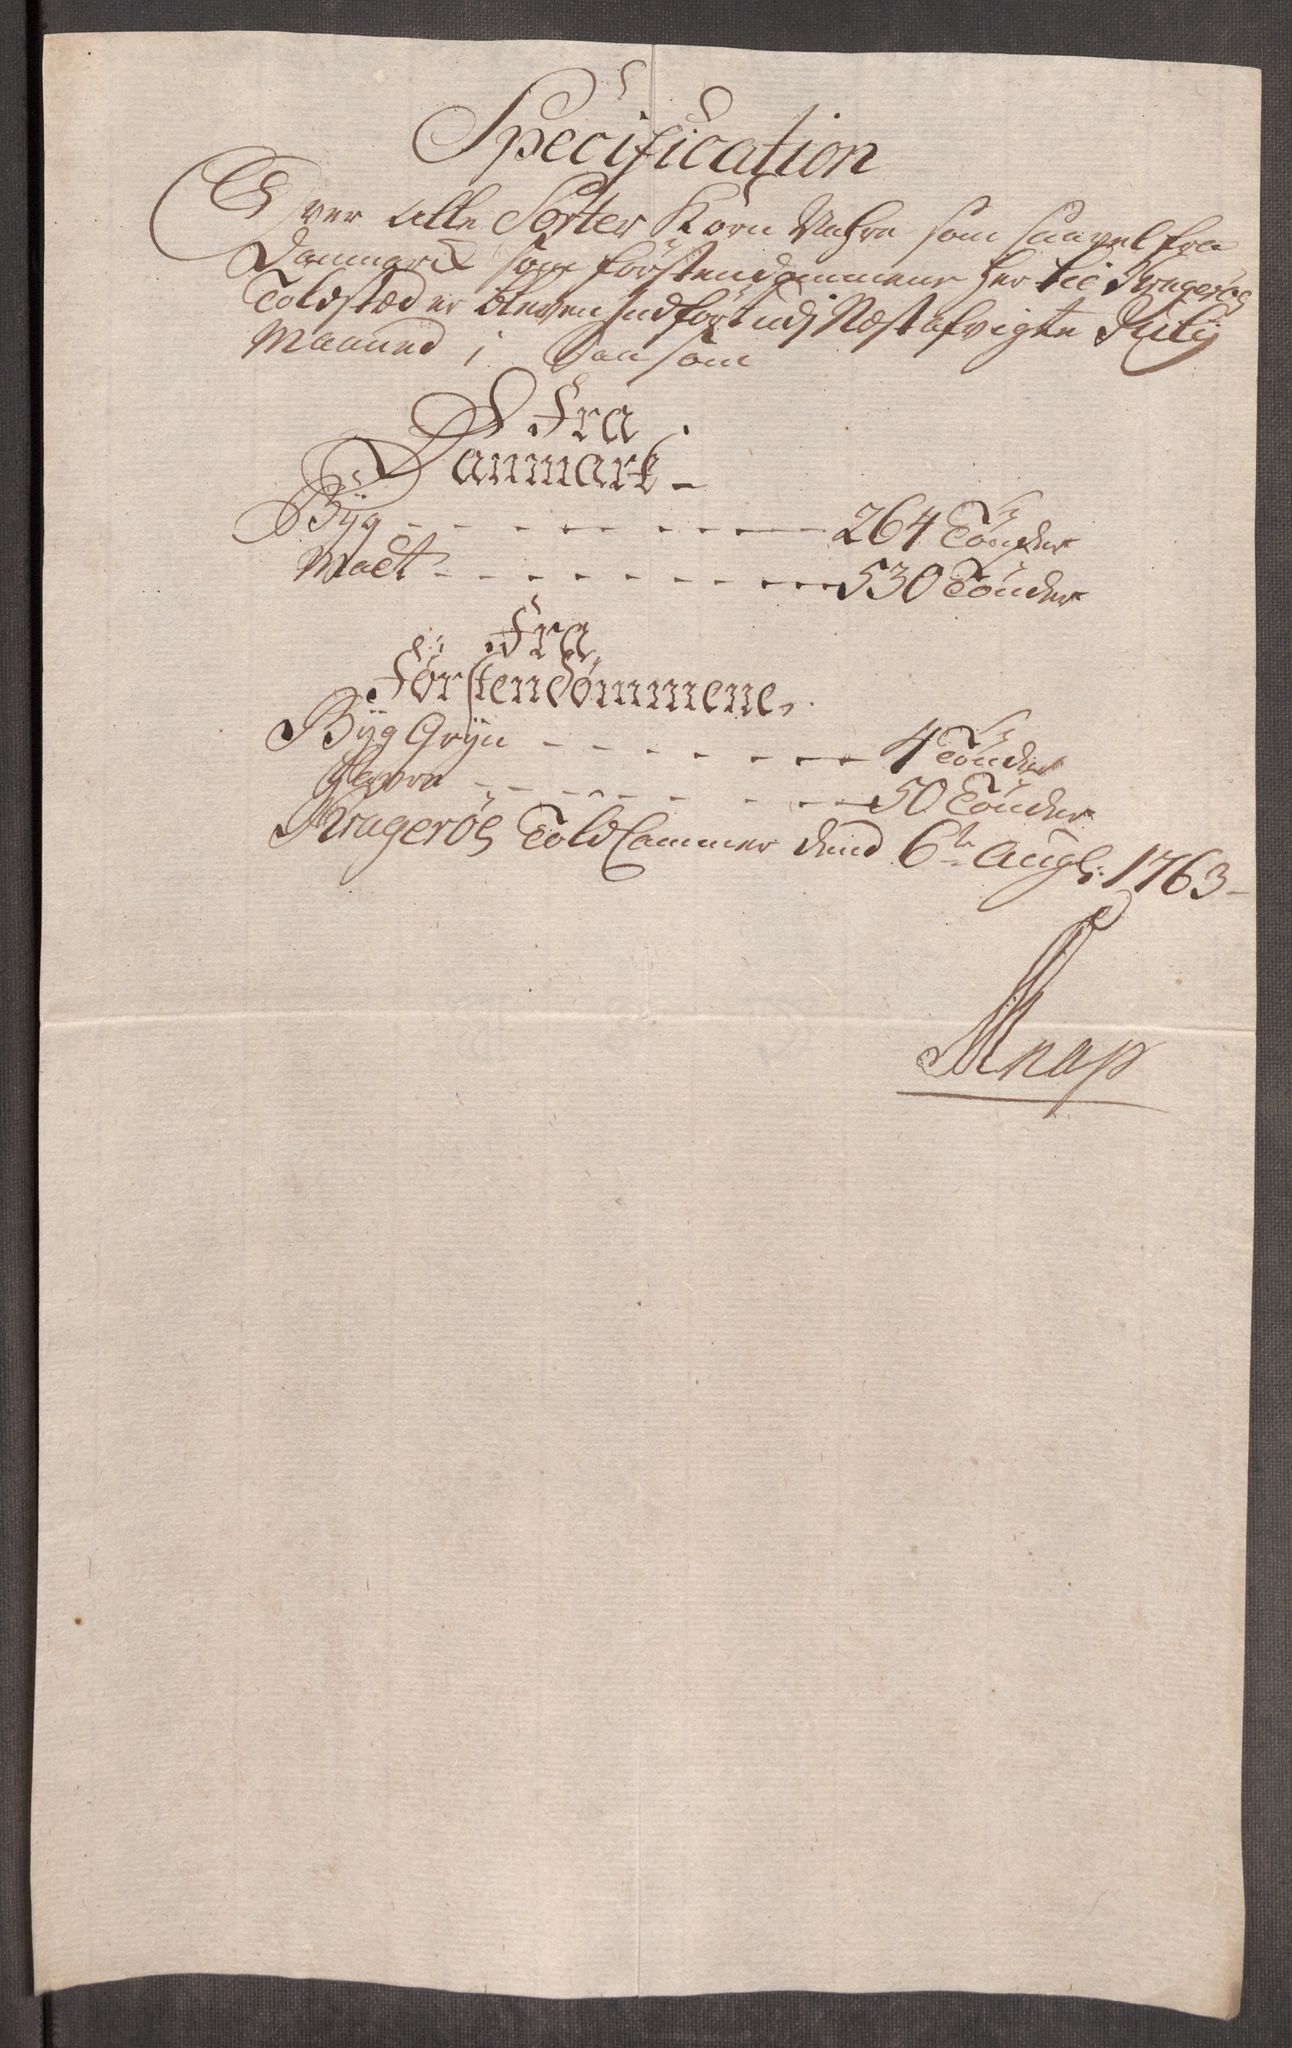 Specification
Over alle Sorter Korn Vahre som saavel fra
Danmarck som förstendömmene her til Krageröe
Toldstæd er bleven Indfört udj Næstafvigte Julij
Maaned ; Saasom
Fra
Danmark -
Byg - - - - - - - - 264 Tönder
Malt - - - - - - - - 530 Tönder
Fra
Førstendømmene,
Byg Gryn - - - - - - - 4 Tönder
Havre - - - - - - - - 50 Tönder
Krageröe Told Cammer dend 6te Aug: 1763 -
Knap